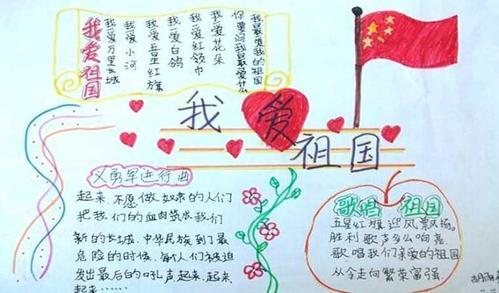 我爱祖国
你要问我最爱什么
我最爱我的祖国
我爱花朵
我爱红领巾
我爱白鸽
我爱五星红旗
我爱小河
我爱万里长城
我爱祖国
义勇军进行曲
起来,不愿做奴隶的人们
把我们的血肉筑成我们
新的长城,中华民族到了最
危险的时候,每个人们被迫
发出最后的吼声起来,起来
起来……
歌唱 祖国
五星红旗迎风飘扬。
胜利歌声多么响亮
歌唱我们亲爱的祖国
从今走向繁荣富强